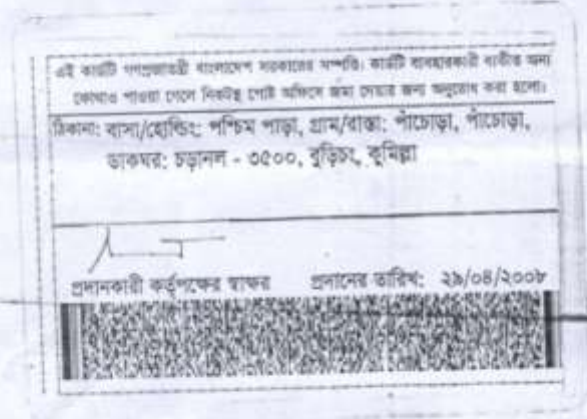 এই কার্ডটি গণপ্রজাতন্ত্রী বাংলাদেশ সরকারের সম্পত্তি। কার্ডটি ব্যবহারকারী ব্যতীত অন্য
কোথাও পাওয়া গেলে নিকটস্থ পোষ্ট অফিসে জমা দেবার জন্য অনুরোধ করা হলো।
ঠিকানা: বাসা/হোল্ডিং: পশ্চিম পাড়া, গ্রাম/রাস্তা: পাঁচোড়া, পাঁচোড়া,
ডাকঘর: চড়ানল - ৩৫০০, বুড়িচং, কুমিল্লা
প্রদানকারী কর্তৃপক্ষের স্বাক্ষর প্রদানের তারিখ: ২৯/০৪/২০০৮